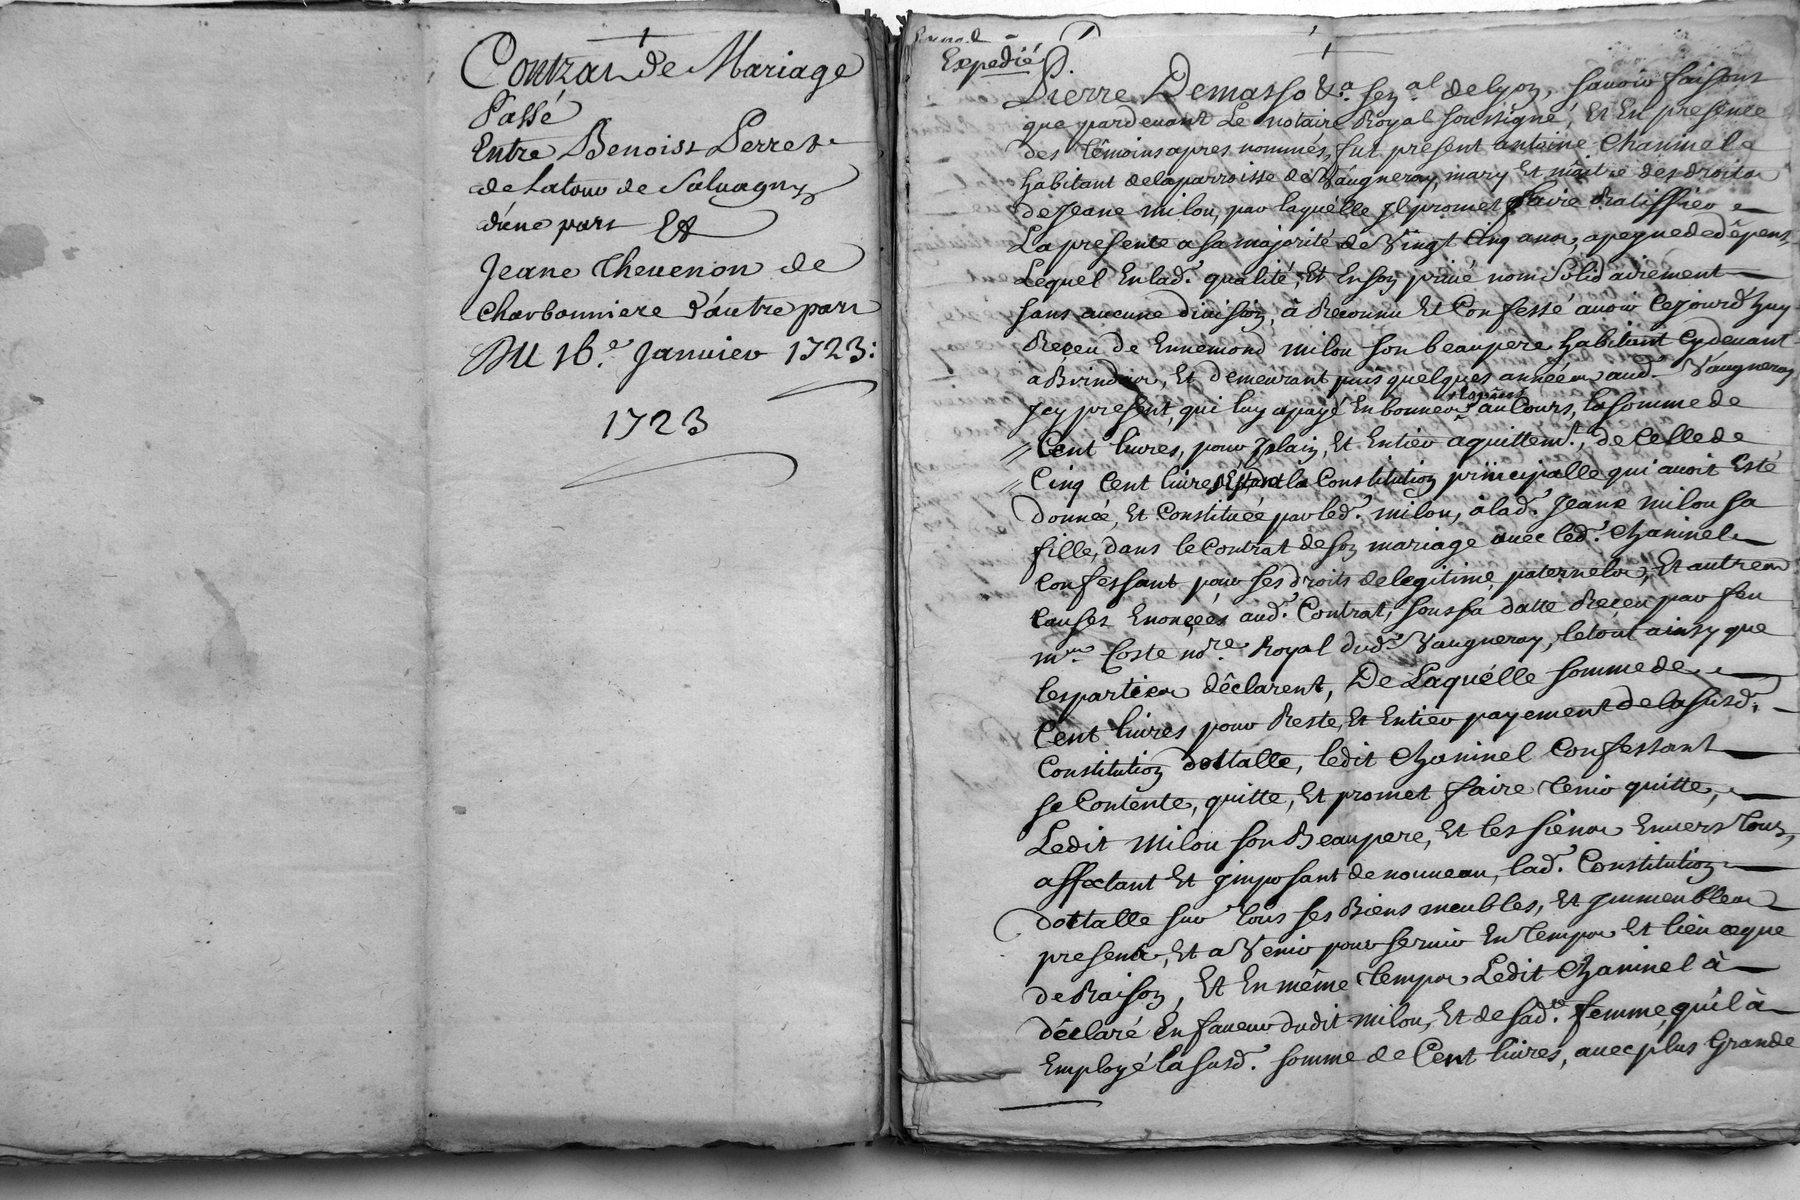 Contrat de Mariage
Passé
Entre Benoist Perret
de Latour de Salvagny
d'une part Et
Jeane Thevenon de
Charbonniere d'autre part
DU 16.e Janvier 1723:
1723
Expedié
Pierre Demasso &a. sen.al de lyon, savoir faisons
que pardevant Le notaire Royal soussigné, Et En presence
des têmoins apres nommés, fut présent antoine Chaninel
habitant de la parroisse de Vaugneray, mary Et maître des droits
de Jeane milon, par laquélle Il promet faire Ratiffier
La presente a sa majorité de Vingt Cinq ans, a peyne de dêpens
Lequel En lad.e qualité, Et En son privé nom Solidairement
sans aucune division, â Reconnu Et Confessé avoir Cejourd'huy
Receu de Ennemond milon son beaupere habitant Cydevant
a Brindas, Et demeurant puis quelques années aud.t Vaugneray
Icy présent, qui luy a payé En bonnes Espêces au Cours, la somme de
Cent livres, pour plain, Et Entier aquittem.t, de Celle de
Cinq Cent livres Estant la Constitution principalle qui avoit Esté
donnée, Et Constituée par led.t milon, â lad.e Jeane milon sa
fille, dans le Contrat de son mariage avec led.t Chaninel
Confessant pour ses droits de legitime paternelle, Et autres
Causes Enonçées aud.t Contrat, sous sa datte Receu par feu
m.re Coste no.re Royal dud.t Vaugneray, le tout ainsy que
les parties dêclarent, De Laquélle somme de
Cent livres pour Reste, Et Entier payement de la susd.e
Constitution dottalle, ledit Chaninel Confessant
se Contente, quitte, Et promet faire tenir quitte,
Ledit milon son Beaupere, Et les siens Envers tous,
affectant Et imposant de nouveau, lad.e Constitution
dottalle sur tous ses Biens meubles, Et immeubles
presens, Et a Venir pour servir En temps Et lieu ce que
de Raison, Et En même temps Ledit Chaninel â
déclaré En faveur dudit milon, Et de sad.te femme, qu'il â
Employé la susd.e somme de Cent livres, avec plus Grande